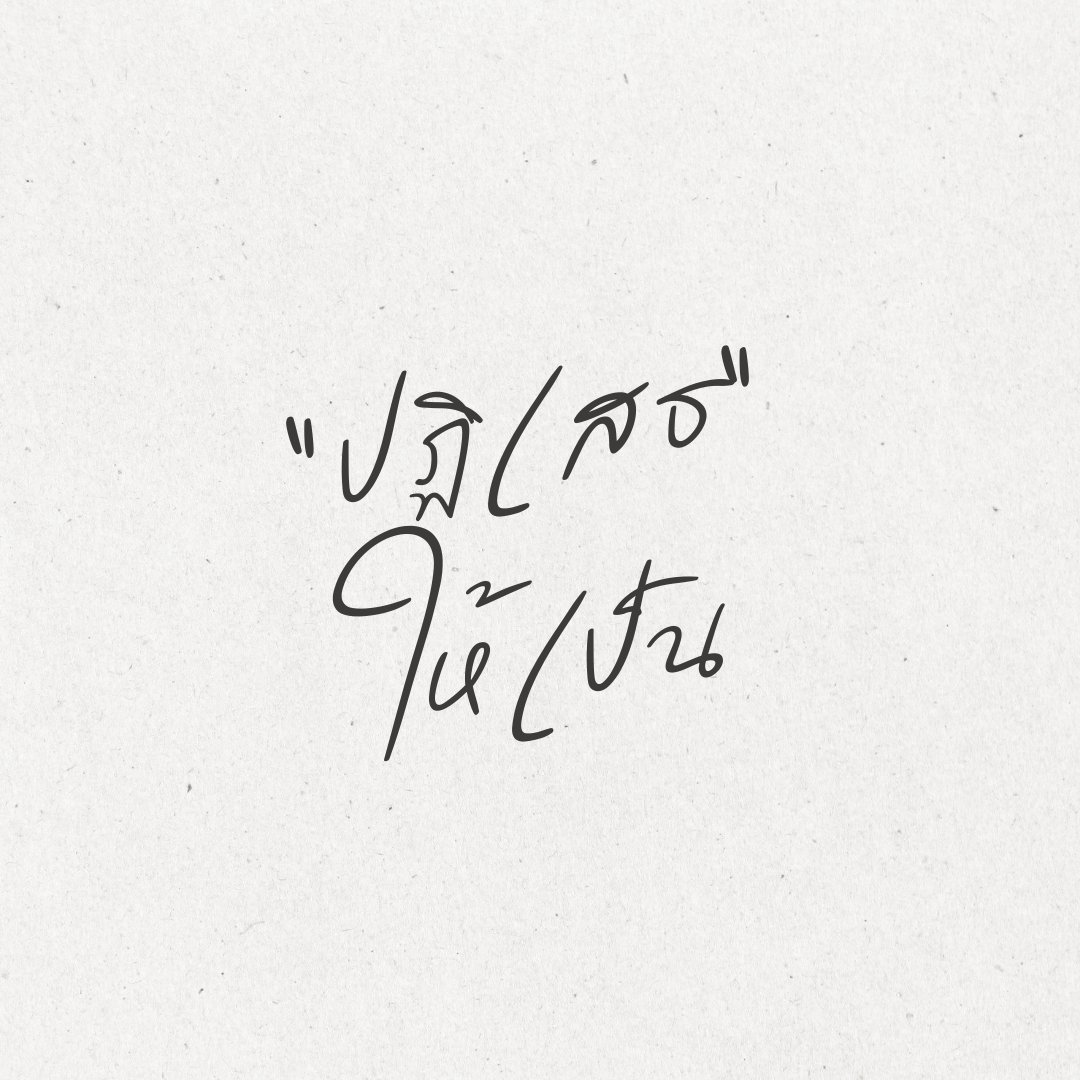 "ปฏิเสธ"
ให้เป็น